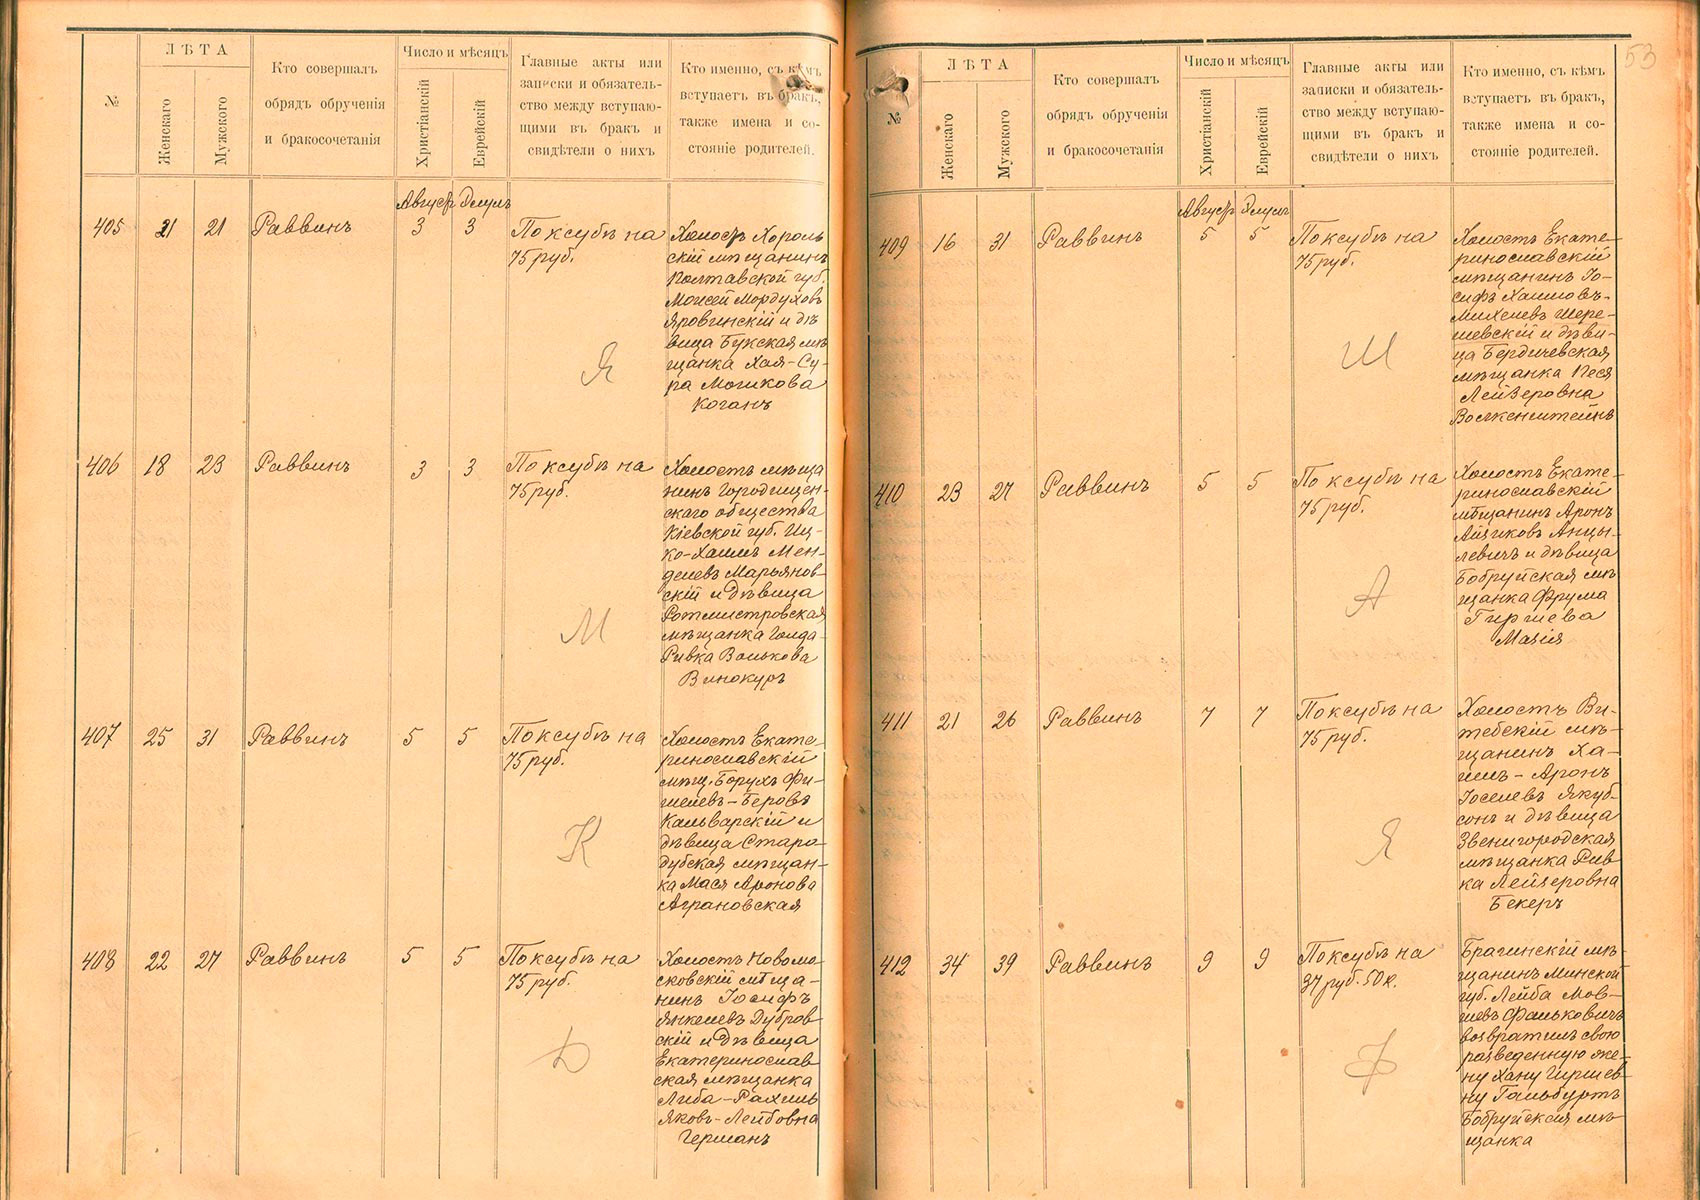 53
№
ЛѢТА
Женскаго
Мужского
Кто совершалъ
обрядъ обрученія
и бракосочетанія
Число и мѣсяцъ
Христіанскій
Еврейскій
Главные акты или
записки и обязатель-
ство между вступаю-
щими въ бракъ и
свидѣтели о нихъ
Кто именно, съ кѣмъ
вступаетъ въ бракъ,
также имена и со-
стояніе родителей.
Августъ Элулъ
405 21 21 Раввинъ 3 3 По ксубѣ на
75 руб.
Холостъ Хороль
скій мѣщанинъ
Полтавской губ.
Моисей Мордуховъ
Яровинскій и дѣ
вица Букская мѣ
щанка Хая-Су-
ра Мошкова
Коганъ
Я
406 18 23 Раввинъ 3 3 По ксубѣ на
75 руб.
Холостъ мѣща
нинъ Городищен-
скаго общества
Кіевской губ. Иц-
ко-Хаимъ Мен-
делевъ Марьянов-
скій и дѣвица
Ротмистровская
мѣщанка Голда-
Ривка Волькова
Винокуръ
М
407 25 31 Раввинъ 5 5 По ксубѣ на
75 руб.
Холостъ Екате-
ринославскій
мѣщ. Борухъ Фи-
шелевъ-Беровъ
Кальварскій и
дѣвица Старо-
дубская мѣщан-
ка Мася Аронова
Аграновская
К
408 22 27 Раввинъ 5 5 По ксубѣ на
75 руб.
Холостъ Новомо-
сковскій мѣща-
нинъ Іосифъ
Янкелевъ Дубров-
скій и дѣвица
Екатеринослав-
ская мѣщанка
Либа-Рахиль
Яковъ-Лейбовна
Германъ
Д
№
ЛѢТА
Женскаго
Мужского
Кто совершалъ
обрядъ обрученія
и бракосочетанія
Число и мѣсяцъ
Христіанскій
Еврейскій
Главные акты или
записки и обязатель-
ство между вступаю-
щими въ бракъ и
свидѣтели о нихъ
Кто именно, съ кѣмъ
вступаетъ въ бракъ,
также имена и со-
стояніе родителей.
Августъ Элулъ
409 16 31 Раввинъ 5 5 По ксубѣ на
75 руб.
Холостъ Екате-
ринославскій
мѣщанинъ Іо-
сифъ Хаимовъ-
Михелевъ Шере-
шевскій и дѣви-
ца Бердичевская
мѣщанка Песя
Лейзеровна
Волкенштейнъ
Ш
410 23 27 Раввинъ 5 5 По ксубѣ на
75 руб.
Холостъ Екате-
ринославскій
мѣщанинъ Аронъ
Айзиковъ Анцы-
левичъ и дѣвица
Бобруйская мѣ
щанка Фрума
Гиршева
А
411 21 26 Раввинъ 7 7 По ксубѣ на
75 руб.
Холостъ Ви-
тебскій мѣ-
щанинъ Ха-
имъ-Аронъ
Іоселевъ Якуб-
сонъ и дѣвица
Звенигородская
мѣщанка Рив
ка Лейзеровна
Бекеръ
Я
412 34 39 Раввинъ 9 9 По ксубѣ на
37 руб. 50 к.
Брагинскій мѣ-
щанинъ Минской
губ. Лейба Мов-
шевъ Фальковичъ
возвратилъ свою
разведенную же-
ну Хану Гиршев-
ну Гальбуртъ
Бобруйская мѣ-
щанка
Ф